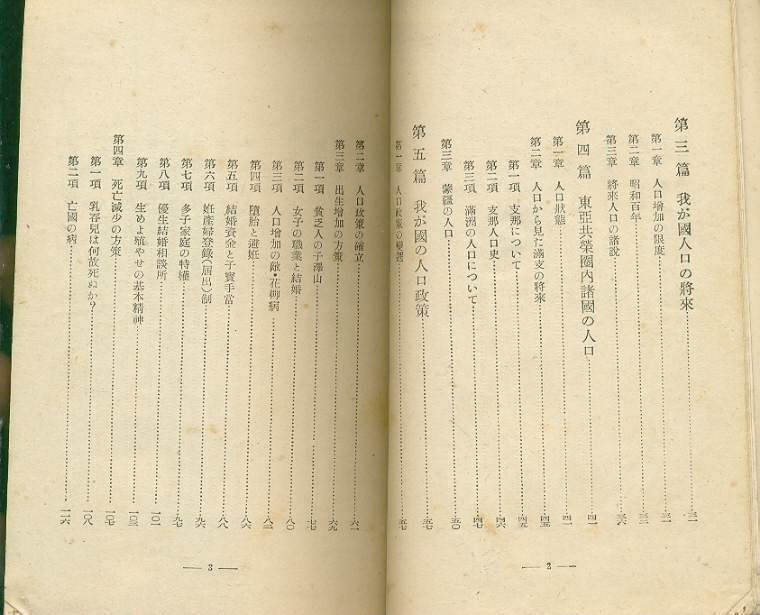 第三篇 我が國人口の將來……三一
第一章 人口增加の限度……三一
第二章 昭和百年……三二
第三章 將來人口の諸說……三六
第四篇 東亞共榮圈內諸國の人口……四一
第一章 人口狀態……四一
第二章 人口から見た滿支の將來……四五
第一項 支那について……四五
第二項 支那人口史……四六
第三項 滿洲の人口について……四七
第三章 蒙疆の人口……五〇
第五篇 我が國の人口政策……五七
第一章 人口政策の變遷……五七
— 2 —
第二章 人口政策の確立……六一
第三章 出生增加の方策……六九
第一項 貧乏人の子澤山……七七
第二項 女子の職業と結婚……八〇
第三項 人口增加の敵・花柳病……八三
第四項 墮胎と避妊……八六
第五項 結婚資金と子寶手當……八八
第六項 姙產婦登錄(屆出)制……九六
第七項 多子家庭の特權……九七
第八項 優生結婚相談所……一〇一
第九項 生めよ殖やせの基本精神……一〇三
第四章 死亡減少の方策……一〇七
第一項 乳吞兒は何故死ぬか?……一〇八
第二項 亡國の病……一一六
— 3 —